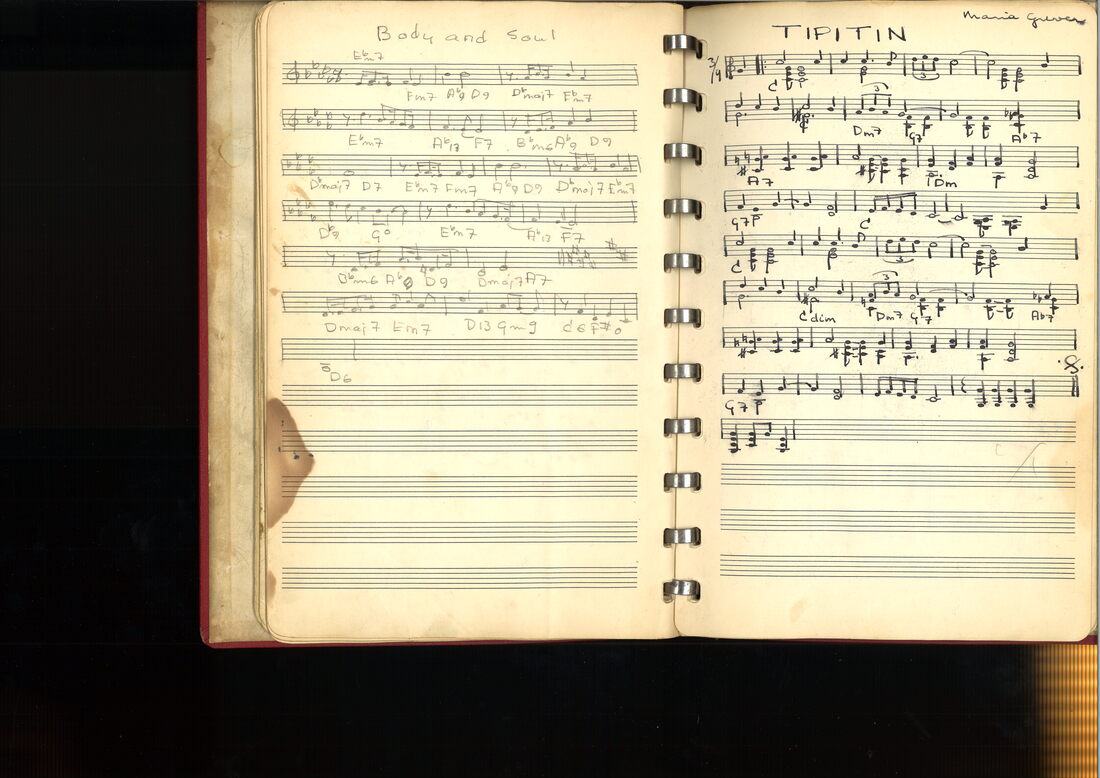 Body and Soul
E♭m7
Fm7 A♭9 D9 D♭maj7 E♭m7
E♭m7 A♭13 F7 B♭m6 A♭9 D9
D♭maj7 D7 E♭m7 Fm7 A♭9 D9 D♭maj7 E♭m7
D♭9 G° E♭m7 A♭13 F7
B♭m6 A♭ D9 Dmaj7 A7
Dmaj7 Em7 D13 Gm9 C6 F#°
D6
Maria Grever
TIPITIN
3/4
C
3
3
Dm7 G7 A♭7
A7 Dm
G7 C
C
3
3
Cdim Dm7 G7 A♭7
G7